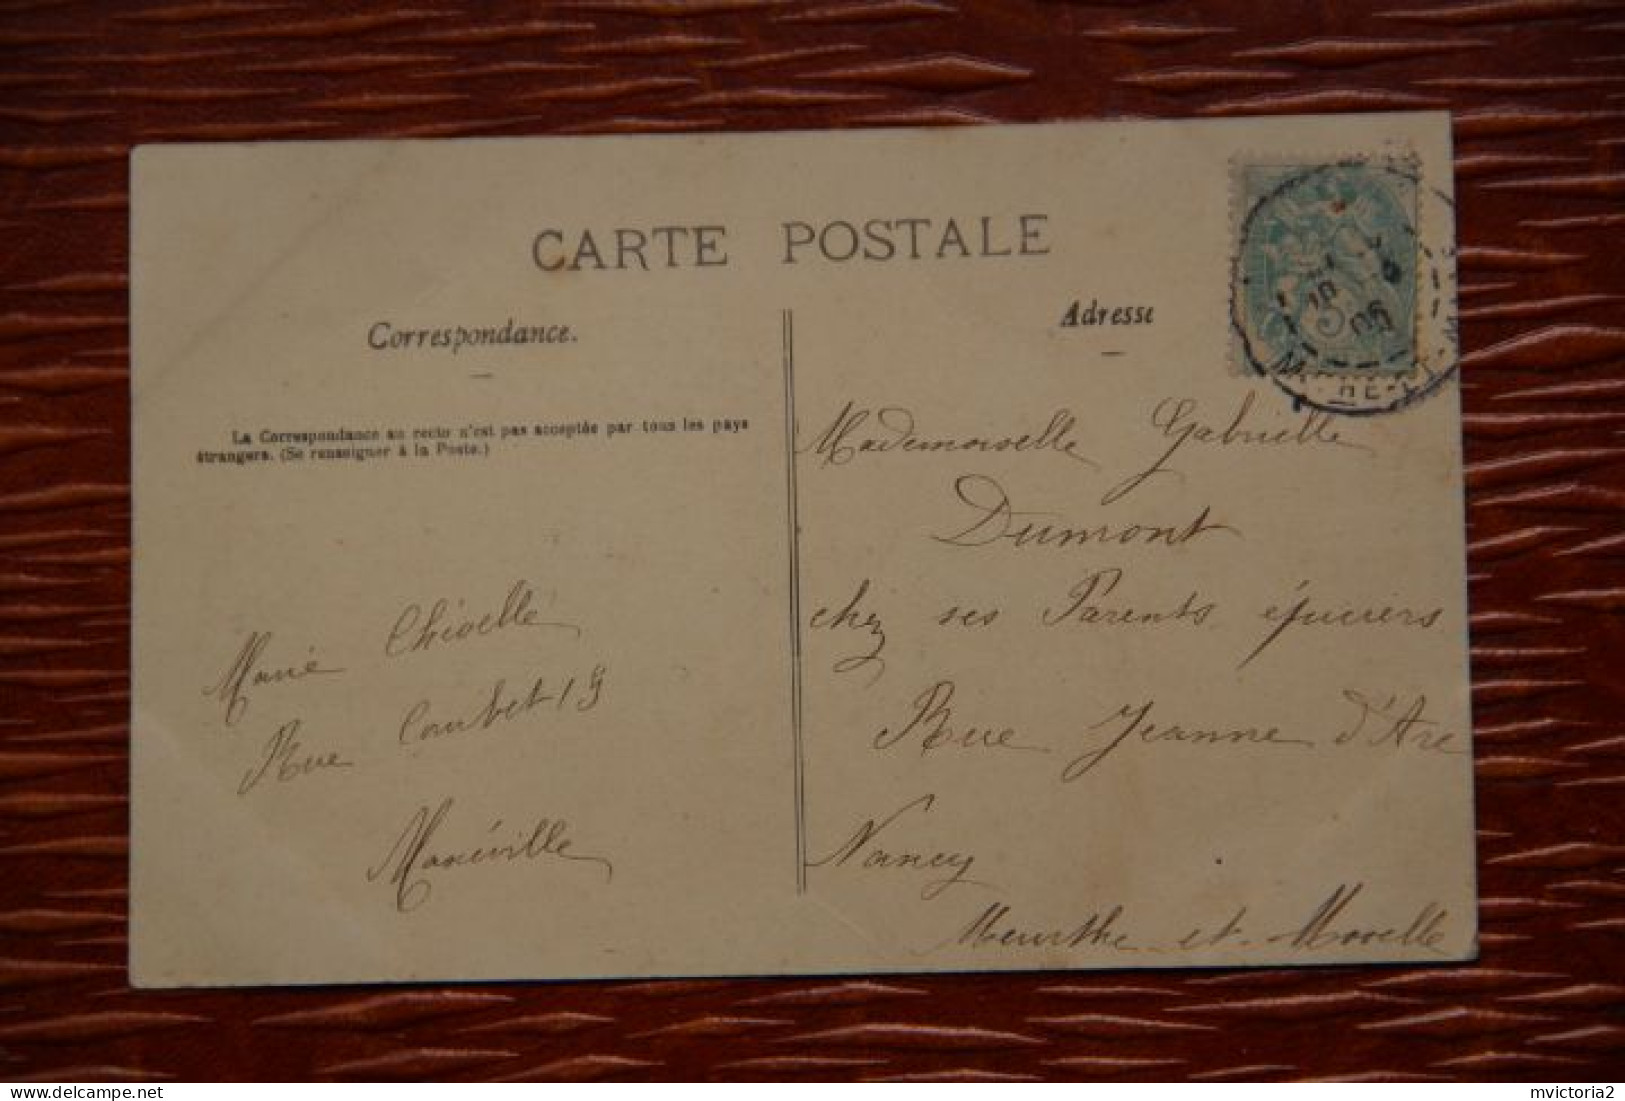 CARTE POSTALE
Correspondance.
Adresse
La Correspondance au recto n'est pas acceptée par tous les pays
étrangers. (Se renseigner à la Poste.)
Mademoiselle Gabrielle
Dumont
chez ses Parents épiciers
Rue Jeanne d'Arc
Nancy
Meurthe-et-Moselle
Marie
Rue Courbet 19
Maxéville
5
06
mvictoria2